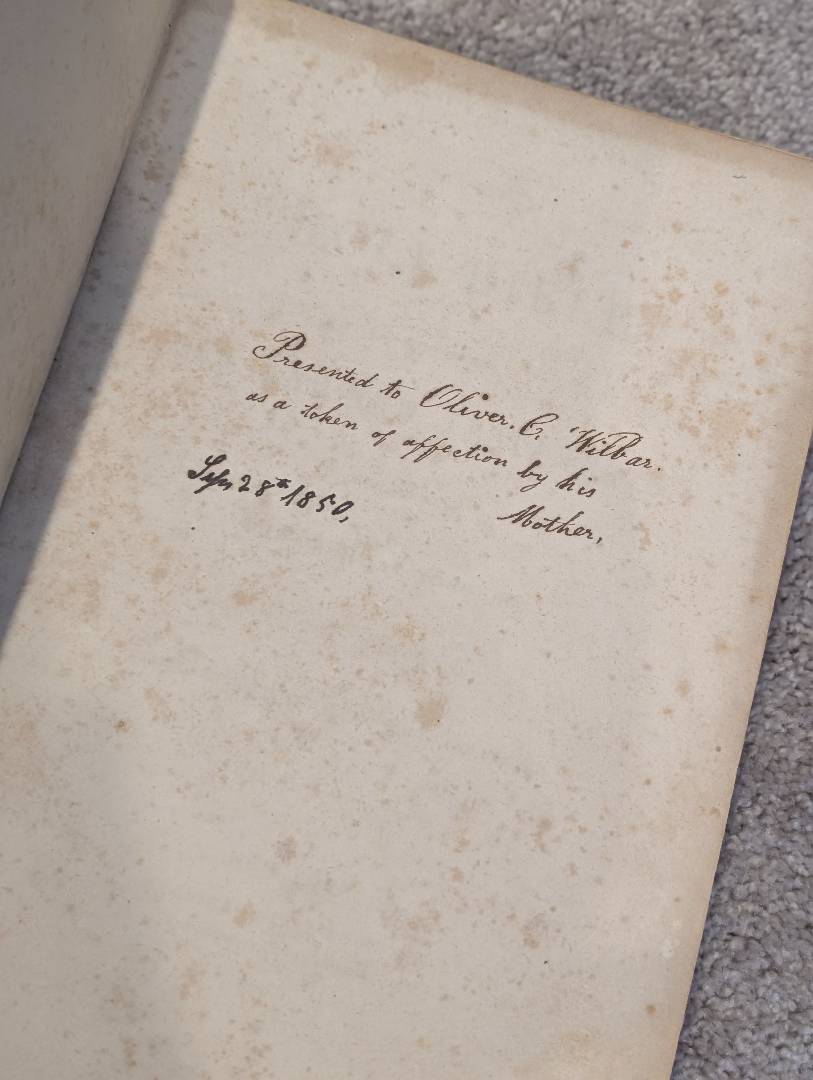 Presented to Oliver. C. Wilbar.
as a token of affection by his
Mother,
Sep 28th 1850,